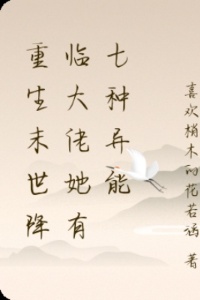 重生末世降
临大佬她有
七种异能
喜欢梢木的花若涵 著